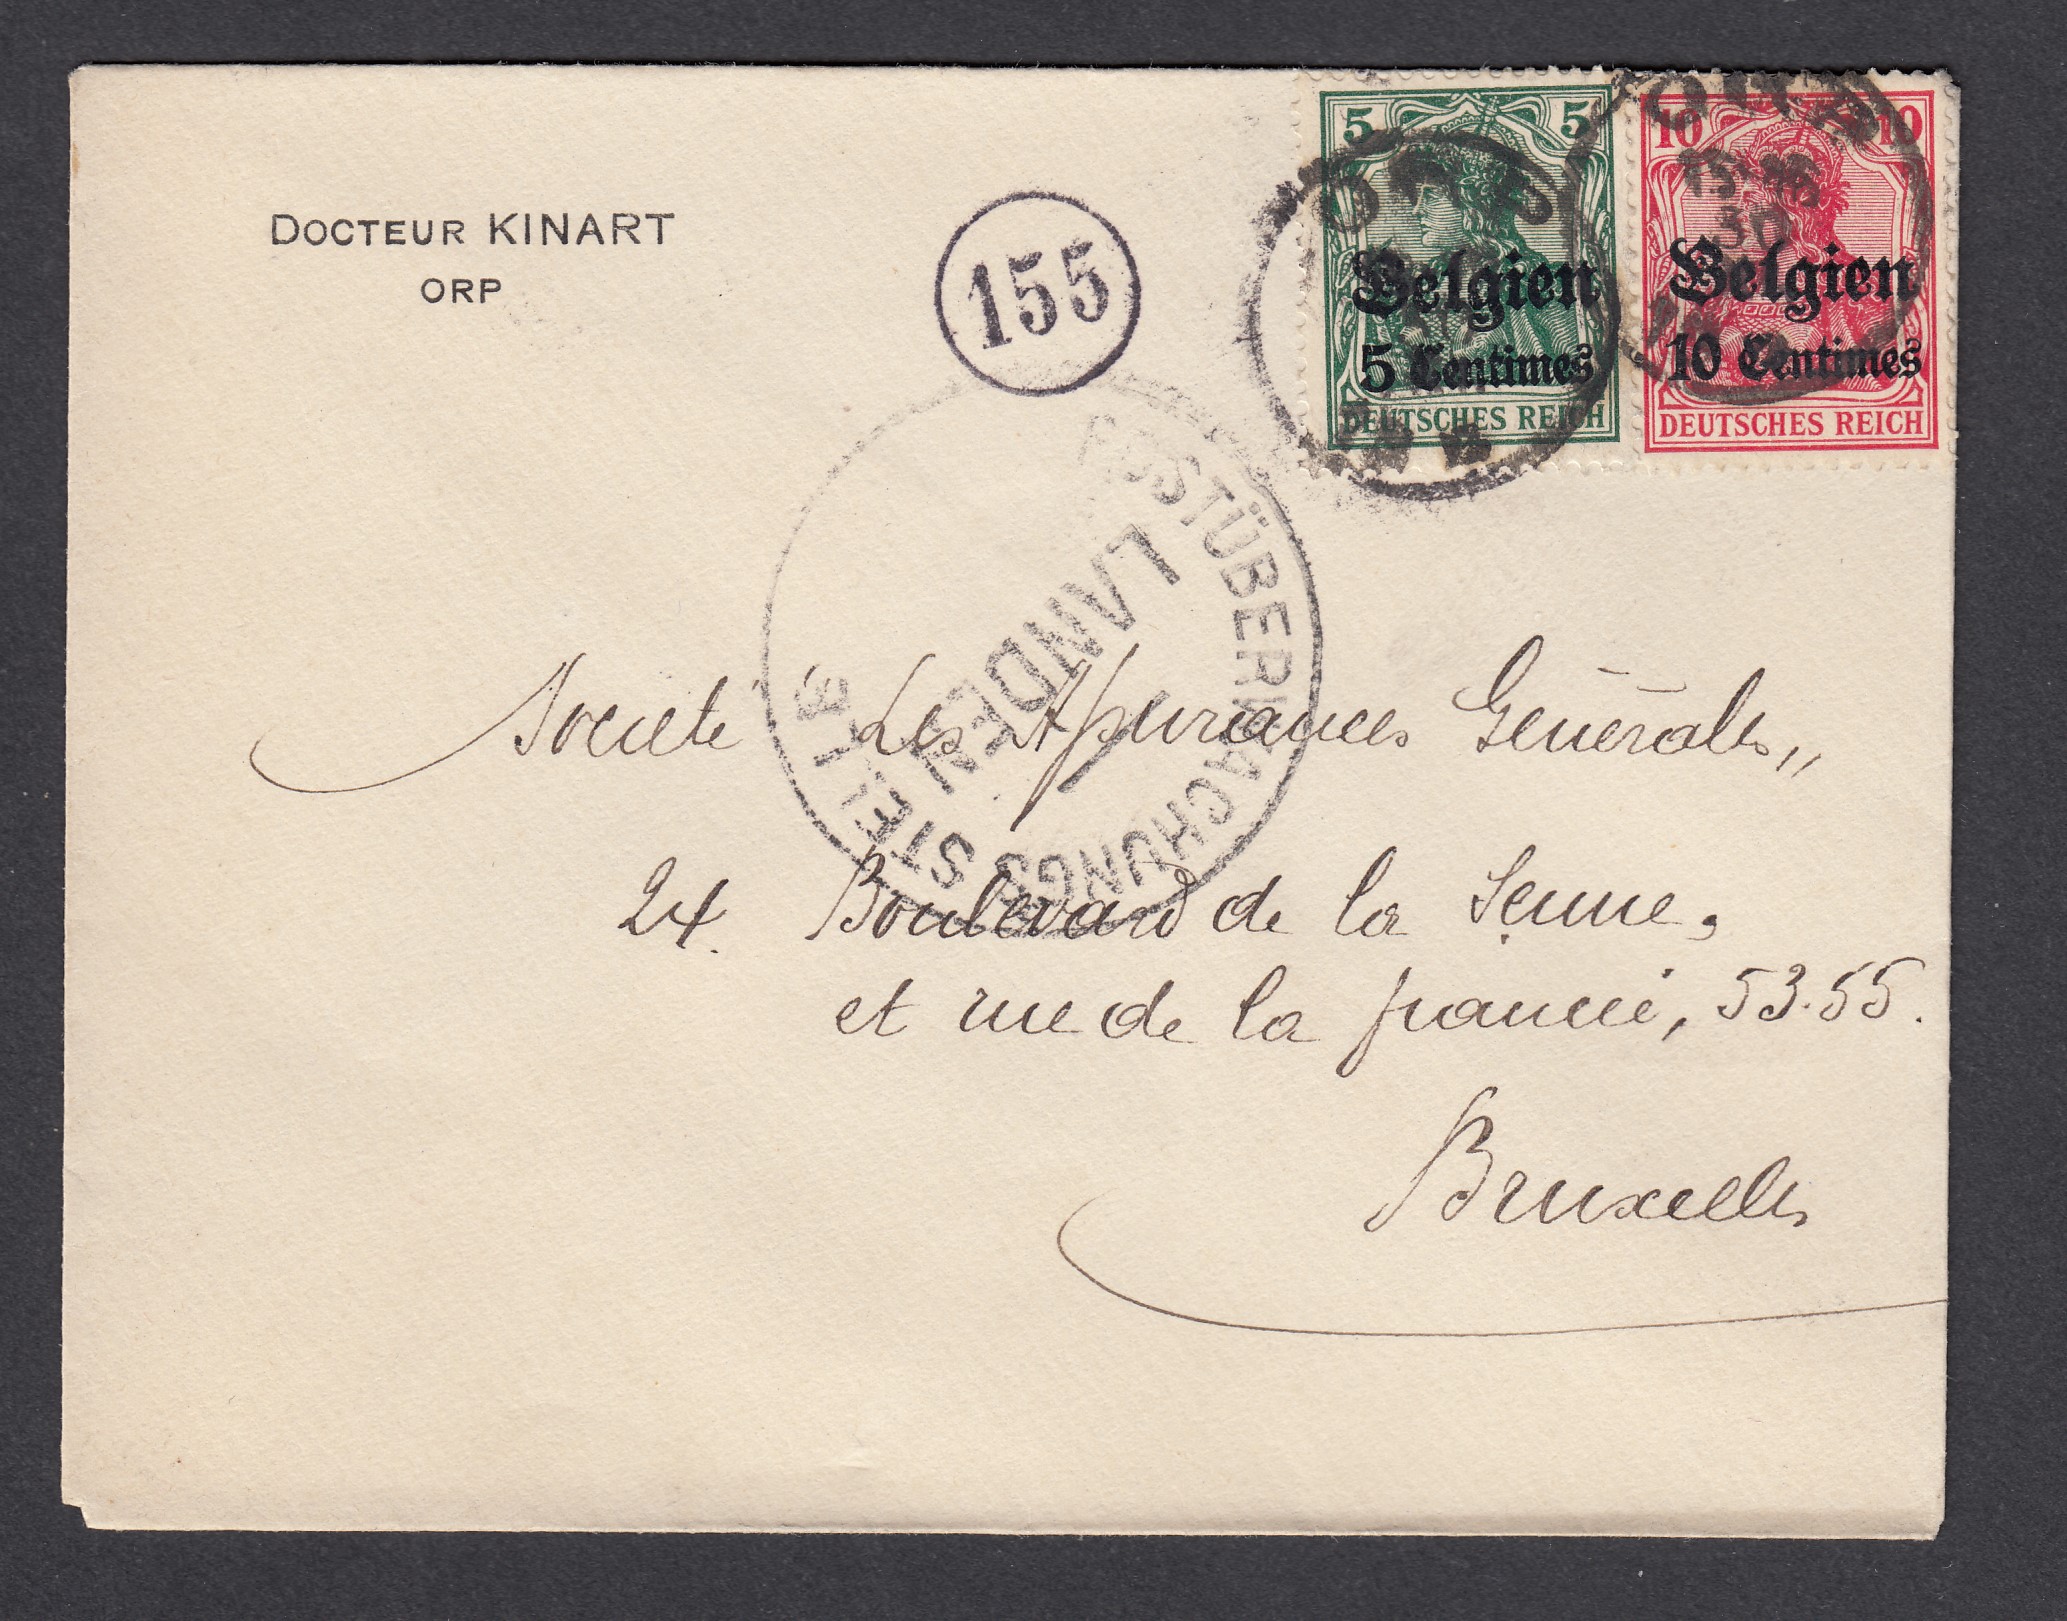 DOCTEUR KINART
ORP
155
5 5
Belgien
5 Centimes
DEUTSCHES REICH
10 10
Belgien
10 Centimes
DEUTSCHES REICH
ORP
ORP
15-16
30
POSTÜBERWACHUNGSSTELLE
LANDEN
Société "Les Assurances Générales,,
24. Boulevard de la Senne,
et rue de la 53.55.
Bruxelles